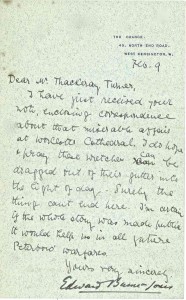 THE GRANGE,
49, NORTH END ROAD,
WEST KENSINGTON, W.
Feb. 9
Dear Mr. Thackeray Turner,
I have just received your
note, enclosing correspondence
about that miserable affair
at Worcester Cathedral. I do hope
& pray those wretches can
be
dragged out of their gutter into
the light of day. Surely the
thing can't end here. I'm certain
if the whole story was made public
it would help us in all future
Peterboro' warfares.
Yours very sincerely
Edward Burne-Jones